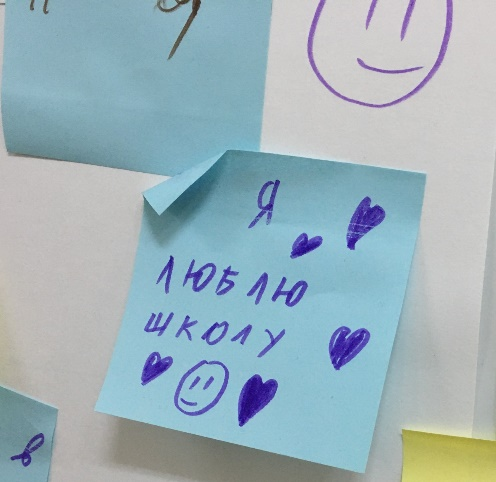 Я
ЛЮБЛЮ
ШКОЛУ
в